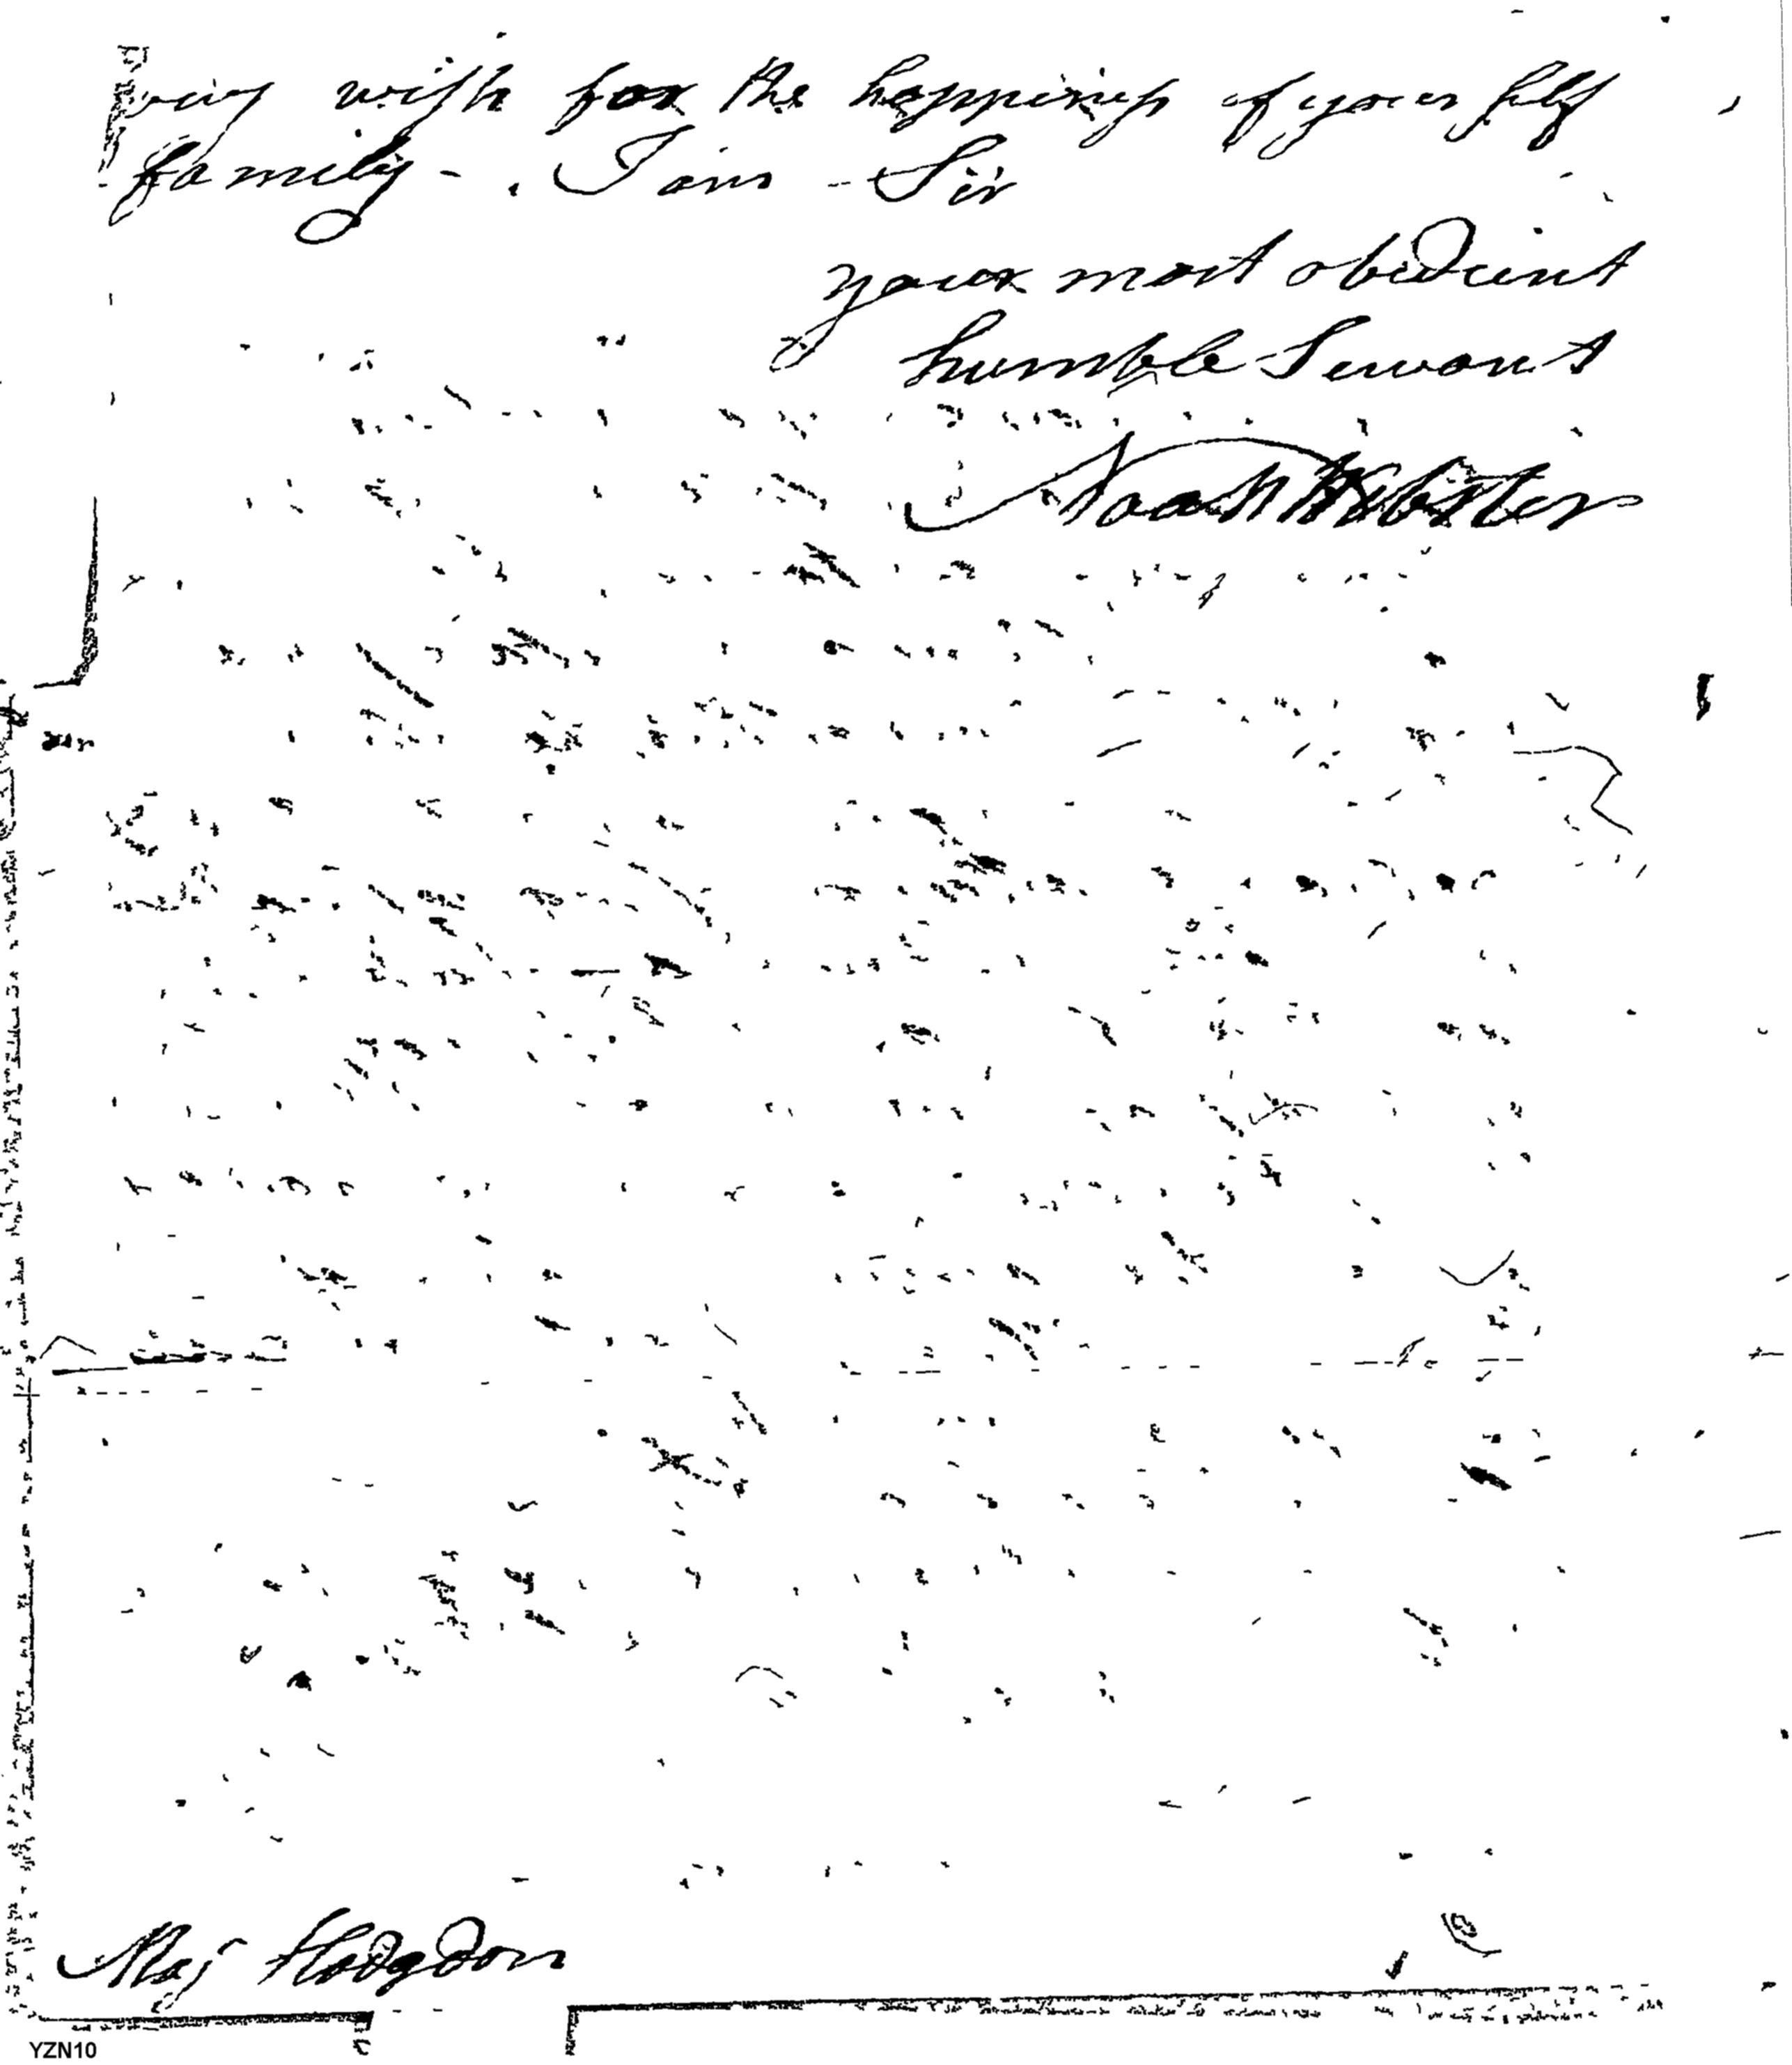 wish for the happiness of your self
family - . I am - Sir
your most obedient
humble Servant
Noah Webster
Maj Hodgdon
YZN10